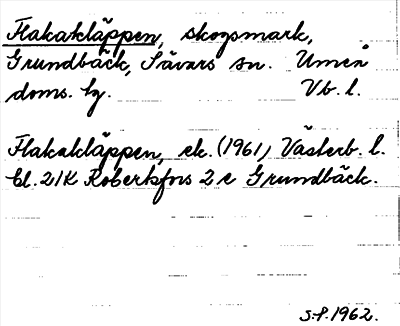 Flakakläppen, skogsmark,
Grundbäck, Sävars sn. Umeå
doms. lg. Vb. l.
Flakakläppen, ek. (1961) Västerb. l.
bl. 21K Robertsfors 2 c Grundbäck.
S.P. 1962.